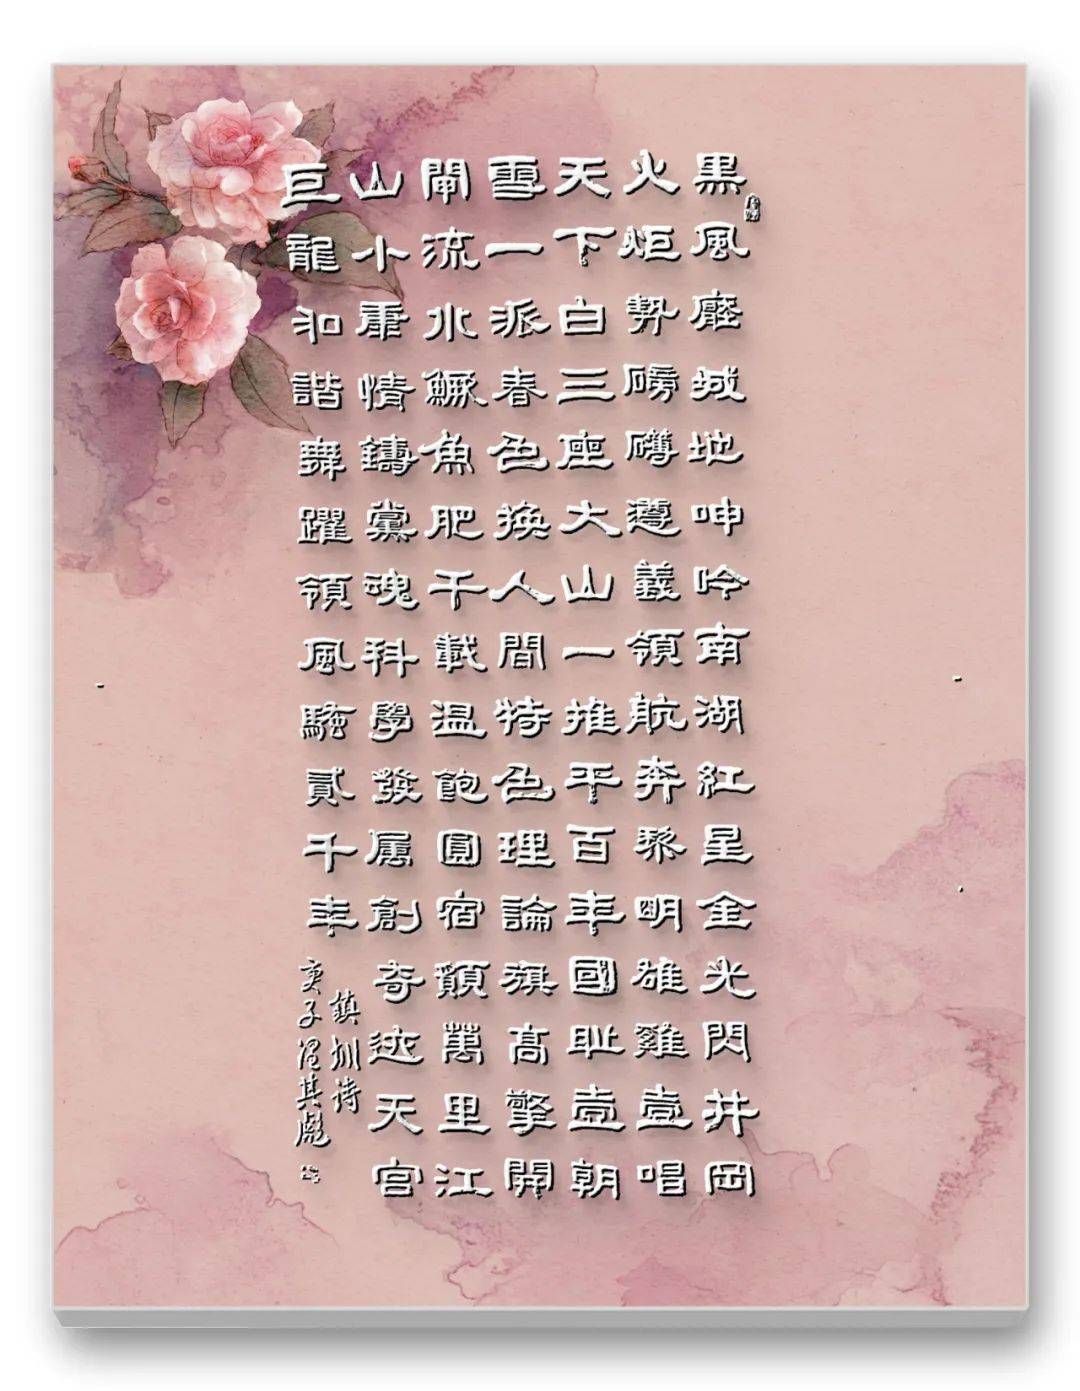 黑風壓城地呻吟南湖紅星金光閃井岡
火炬勢磅礡遵義領航奔黎明雄雞壹唱
天下白三座大山一推平百年國恥壹朝
雪一派春色換人間特色理論旗高擎開
閘流水鱖魚肥千載温飽圓宿願萬里江
山小康情鑄黨魂科學發展創奇迹天宮
巨龍和諧舞躍領風騷貳千年
鎮圳詩
庚子溫其彪